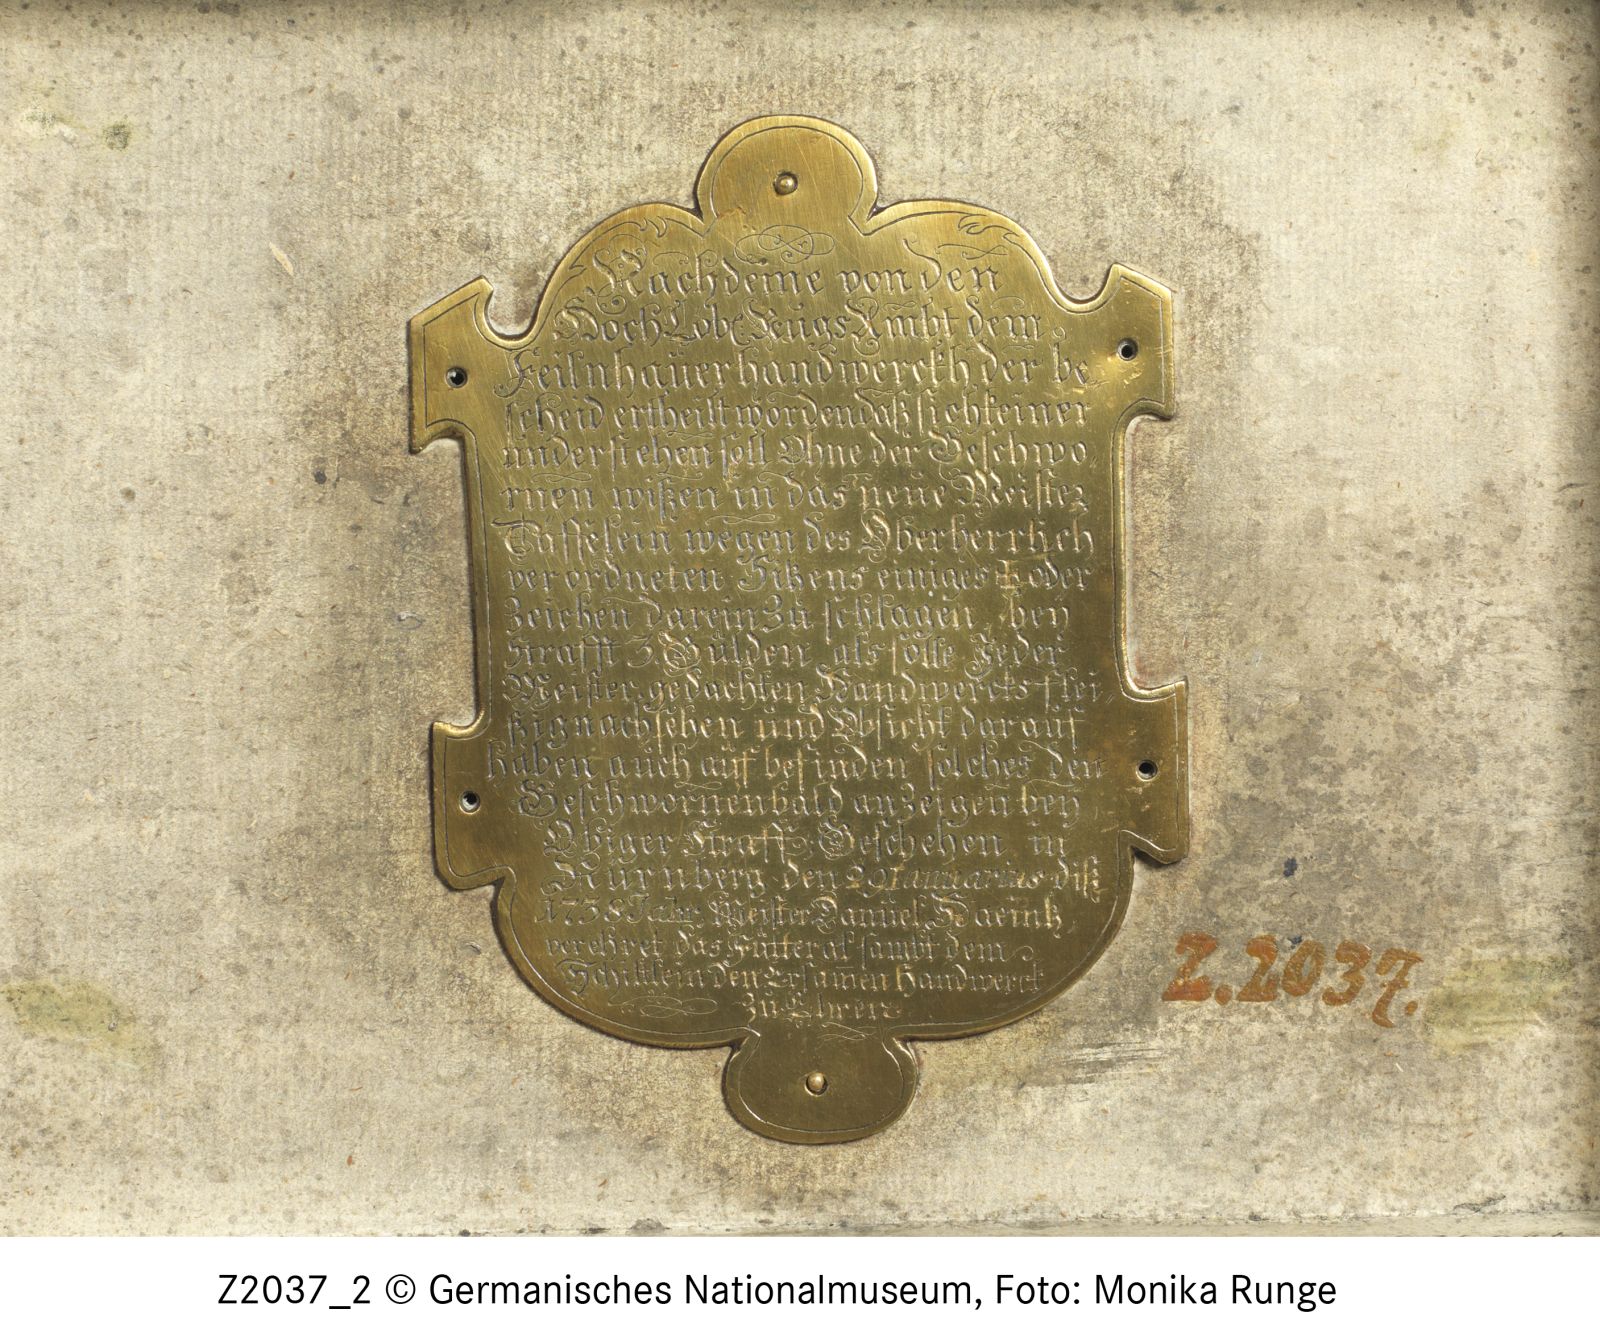 Nachdeme von den
HochLobl. RugsAmbt dem
Feilnhauerhandwerckh der be
scheid ertheilt worden daß sich keiner
understehen soll Ohne der Geschwo-
rnen wißen in das neue Meister
Täffelein wegen des Oberherrlich
verordneten Sitzens einiges oder
Zeichen darein Zu schlagen bey
straff 3. Gulden als solle Jeder
Meister gedachten Handwercks flei-
ßig nachsehen und Obsicht darauf
haben auch auf befinden solches den
Geschwornen bald anzeigen bey
Obiger straff, Geschehen in
Nürnberg den 29 Januarius diß
1738 Jahr, Meister Daniel
verehret das Futteral sambt dem
Schiltlein den Ersamen Handwerck
zu Ehren
Z.2037.
Z2037_2 © Germanisches Nationalmuseum, Foto: Monika Runge